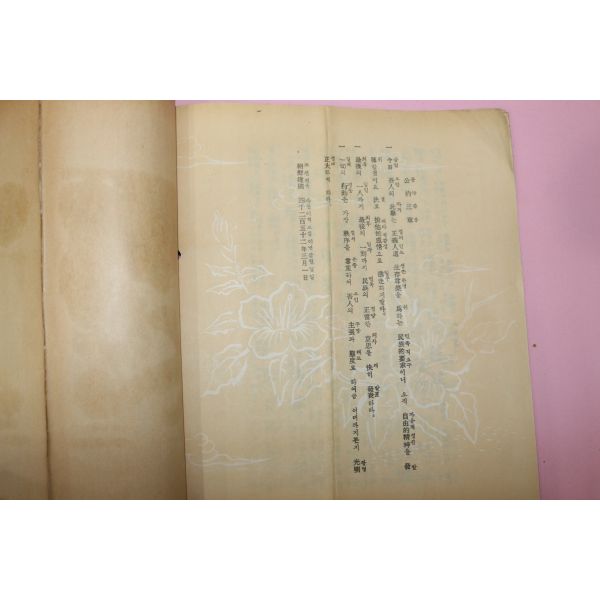 公約三章
一 今日 吾人의 此擧는 正義人道 生存尊榮을 爲하는 民族的要求이니 오직 自由的精神을 發
揮할것이오 決코 排他的感情으로 逸走하지말라。
一 最後의 一人까지 最後의 一刻까지 民族의 正當한 意思를 快히 發表하라。
一 一切의 行動은 가장 秩序를 尊重하야 吾人의 主張과 態度로 하여금 어데까지던지 光明
正大하게 하라
朝鮮建國 四千二百五十二年三月一日